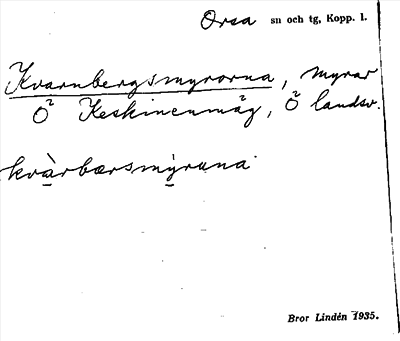 Orsa sn och tg, Kopp. l.
Kvarnbergsmyrorna, myrar
Ö² Keskinenmäg, Ö² landsv.
kvàrbærsmỳruna
Bror Lindén 1935.